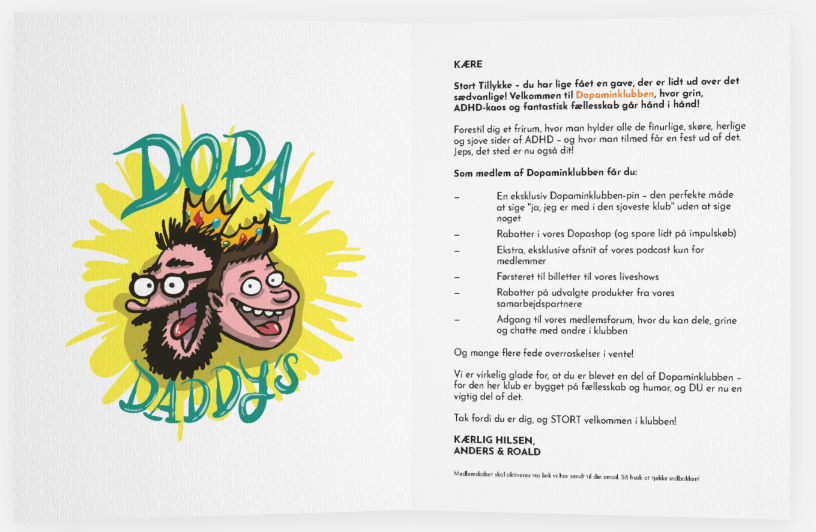 DOPA
DADDY'S
KÆRE
Stort Tillykke – du har lige fået en gave, der er lidt ud over det
sædvanlige! Velkommen til Dopaminklubben, hvor grin,
ADHD-kaos og fantastisk fællesskab går hånd i hånd!
Forestil dig et frirum, hvor man hylder alle de finurlige, skøre, herlige
og sjove sider af ADHD – og hvor man tilmed får en fest ud af det.
Jeps, det sted er nu også dit!
Som medlem af Dopaminklubben får du:
– En eksklusiv Dopaminklubben-pin – den perfekte måde
at sige "ja, jeg er med i den sjoveste klub" uden at sige
noget
– Rabatter i vores Dopashop (og spare lidt på impulskøb)
– Ekstra, eksklusive afsnit af vores podcast kun for
medlemmer
– Førsteret til billetter til vores liveshows
– Rabatter på udvalgte produkter fra vores
samarbejdspartnere
– Adgang til vores medlemsforum, hvor du kan dele, grine
og chatte med andre i klubben
Og mange flere fede overraskelser i vente!
Vi er virkelig glade for, at du er blevet en del af Dopaminklubben –
for den her klub er bygget på fællesskab og humor, og DU er nu en
vigtig del af det.
Tak fordi du er dig, og STORT velkommen i klubben!
KÆRLIG HILSEN,
ANDERS & ROALD
Medlemskabet skal aktiveres via link vi har sendt til din email. Så husk at tjekke indbakken!